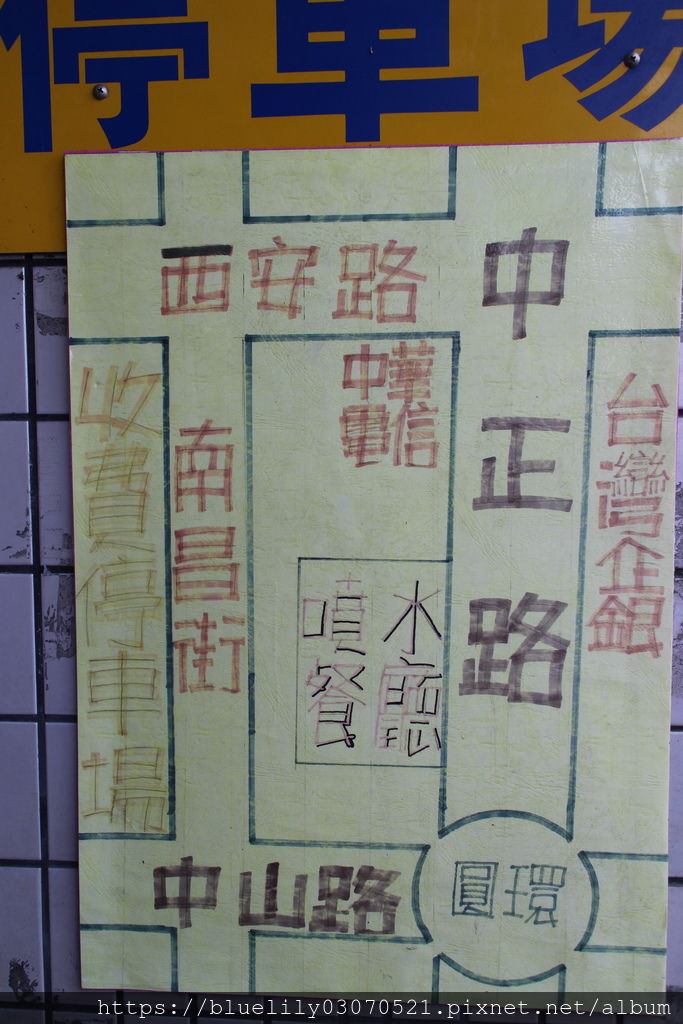 停車場
西安路
中正路
中華電信
收費停車場
南昌街
台灣企銀
噴水餐廳
中山路
圓環
https://bluelily03070521.pixnet.net/album